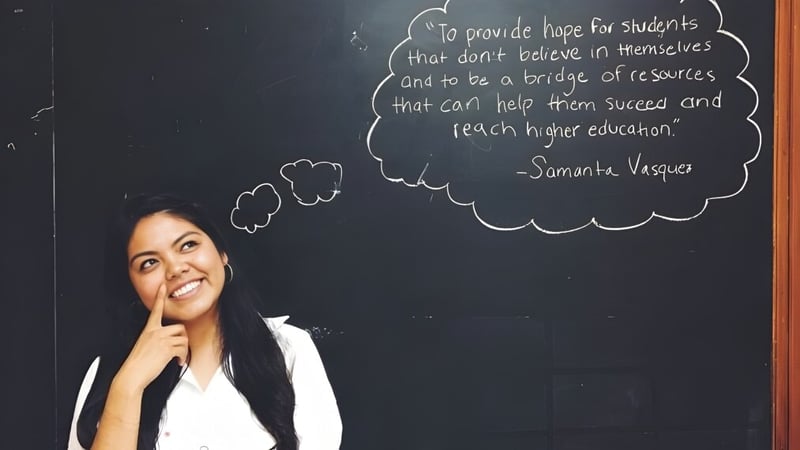 "To provide hope for students
that don't believe in themselves
and to be a bridge of resources
that can help them succeed and
reach higher education."
-Samanta Vasquez